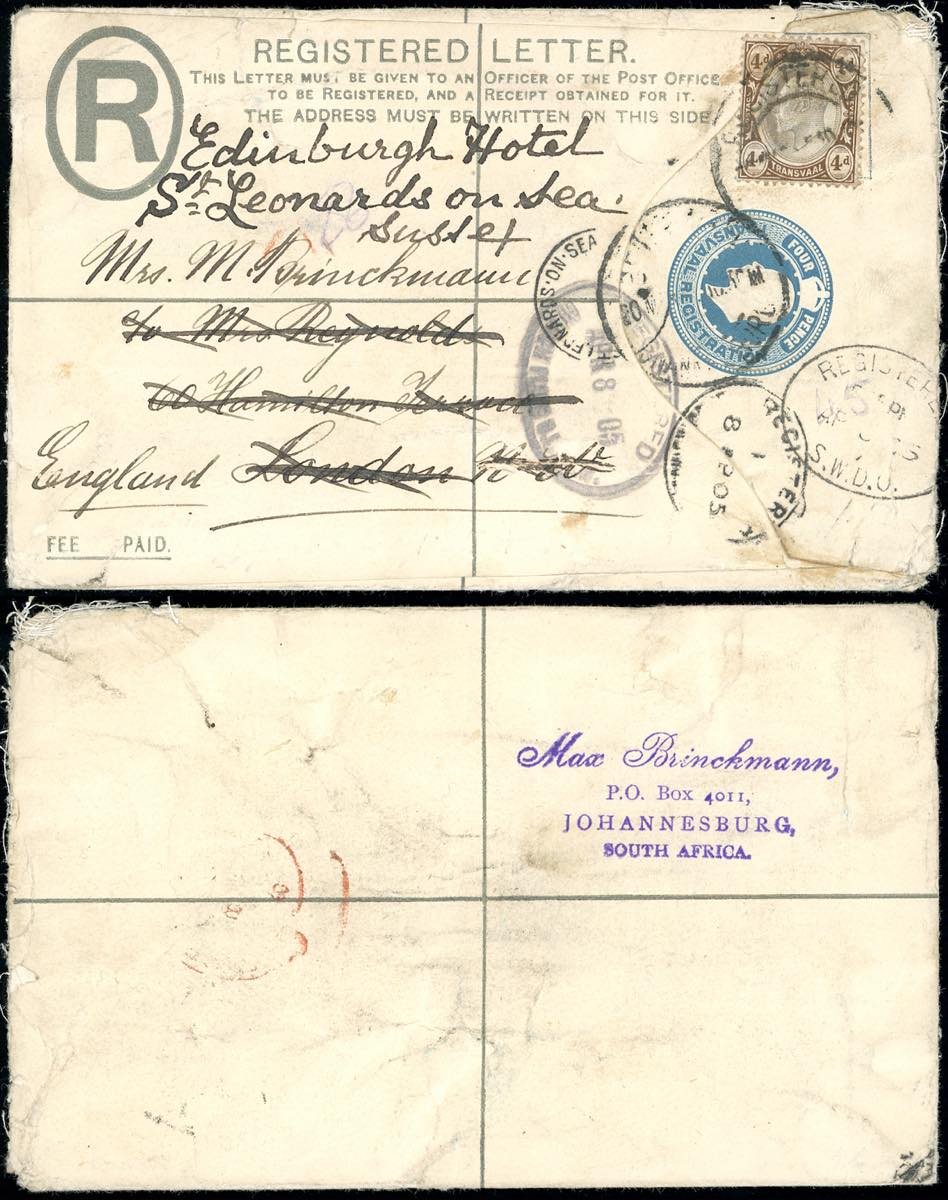 R
REGISTERED LETTER.
THIS LETTER MUST BE GIVEN TO AN OFFICER OF THE POST OFFICE
TO BE REGISTERED, AND A RECEIPT OBTAINED FOR IT.
THE ADDRESS MUST BE WRITTEN ON THIS SIDE
4d
4d
4d
4d
TRANSVAAL
Edinburgh Hotel
St Leonards on sea.
Sussex
Mrs. M. Brinckmann
to Mrs Reynolds
Hamilton Terrace
England London N.W.
FEE PAID.
FOUR PENCE
TRANSVAAL
REGISTRATION
LEONARDS-ON-SEA
8 05
REGISTER
8 05
REGISTERED
S.W.D.O.
Max Brinckmann,
P.O. Box 4011,
JOHANNESBURG,
SOUTH AFRICA.